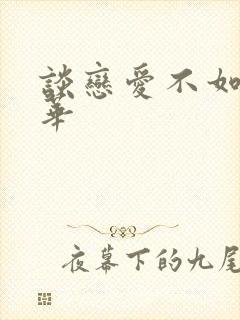 談戀愛不如
華
夜幕下的九尾